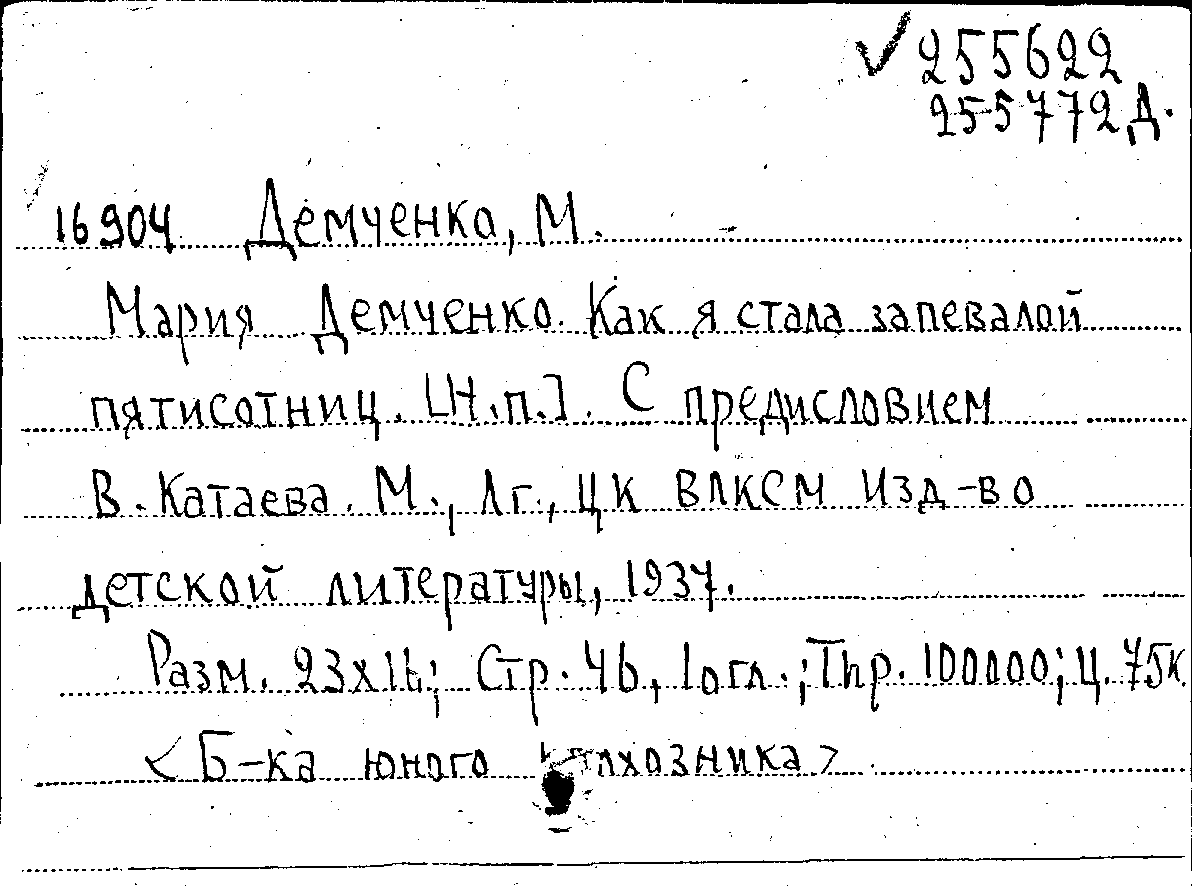 ✓ 255622
255772 Д.
16904 Демченко, М.
Мария Демченко. Как я стала запевалой
пятисотниц. [Н.п.]. С предисловием
В. Катаева. М., Лг., ЦК ВЛКСМ Изд-во
детской литературы, 1937.
Разм. 23х16; Стр. 46, 1 огл.; Тир. 100000; Ц. 75к.
<Б-ка юного колхозника>